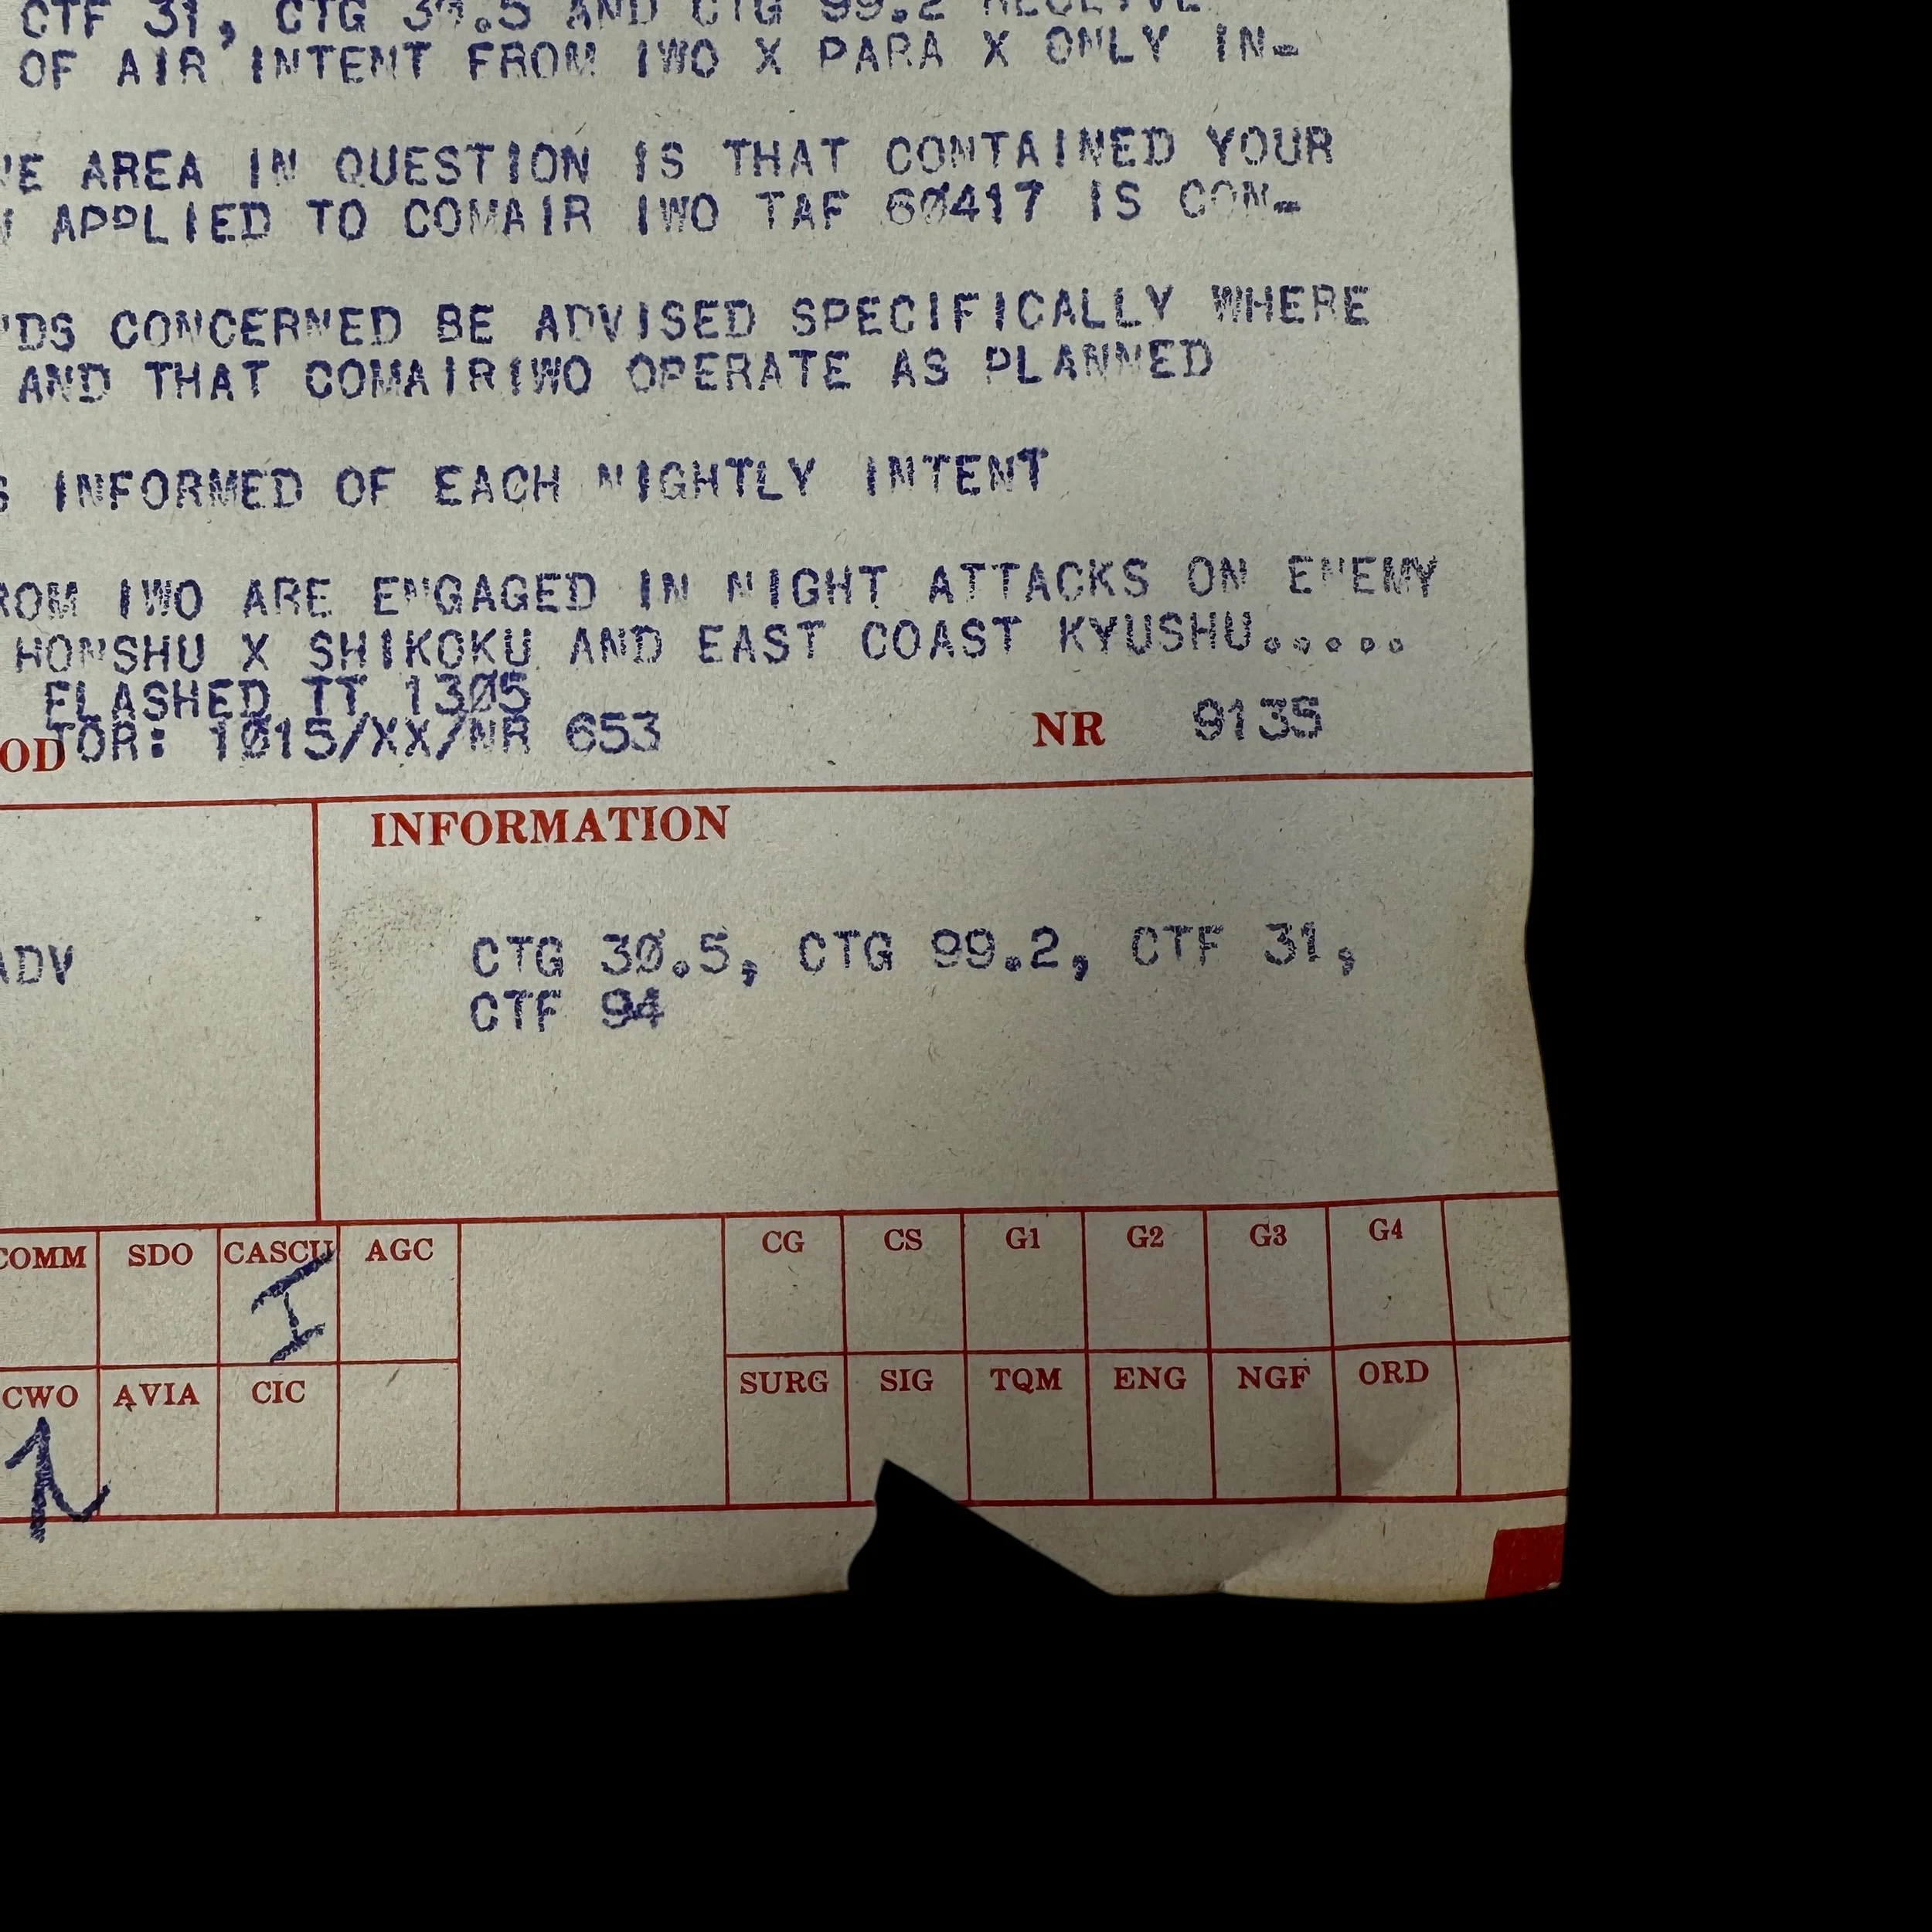 CTF 31, CTG 30.5 AND CTG 99.2 RECEIVE
OF AIR INTENT FROM IWO X PARA X ONLY IN-
AREA IN QUESTION IS THAT CONTAINED YOUR
APPLIED TO COMAIR IWO TAF 60417 IS CON-
NDS CONCERNED BE ADVISED SPECIFICALLY WHERE
AND THAT COMAIRIWO OPERATE AS PLANNED
S INFORMED OF EACH NIGHTLY INTENT
ROM IWO ARE ENGAGED IN NIGHT ATTACKS ON ENEMY
HONSHU X SHIKOKU AND EAST COAST KYUSHU.....
FLASHED TT 1305
OD TOR: 1015/XX/NR 653 NR 9135
INFORMATION
ADV CTG 30.5, CTG 99.2, CTF 31,
CTF 94
COMM SDO CASCU AGC CG CS G1 G2 G3 G4
I
CWO AVIA CIC SURG SIG TQM ENG NGF ORD